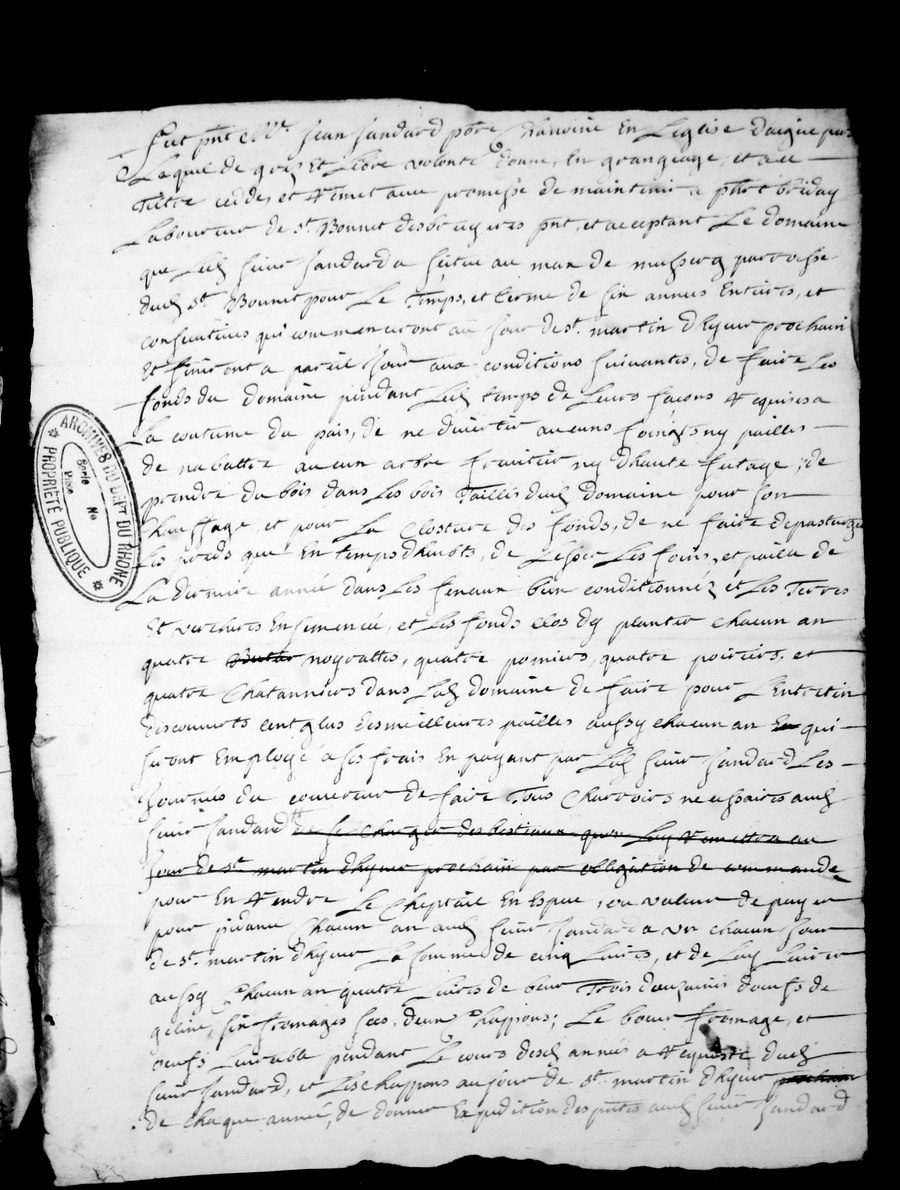 Fut pnt Mre Jean Sandard pbre Chanoine En Leglise daigueperse
Lequel de gré Et Libre volonté donne, En grangeage, et a ce
Tiltre cedde, et Remet avec promesse de maintenir a pierre briday
Laboureur de st. Bonnet desbruyeres pnt, et acceptant Le domaine
que Led sieur Sandard a scitue au mas de parroisse
dud st. Bonnet pour Le Temps, et terme de six années Entieres, et
consecutives qui commenceront au Jour de st. martin dhyver prochain
Et finiront a pareil Jour aux conditions suivantes, de faire Les
fonds du domaine pendant Led temps de Leurs façons Requises a
La coutume du païs, de ne divertir aucuns foings ny pailles
de nabattre aucun arbre fruitier ny dhaute futaye, de
prendre du bois dans Les bois Taillis dud domaine pour son
chauffage, et pour La Closture des fonds, de ne faire depasturger
Les preds que En temps dheubt, de Lesser Les foins, et paille de
La derniere année dans Les fenaux bien conditionnez et Les Terres
Et vercheres Ensemencé, et Les fonds clos dy planter chacun an
quatre noyrattes, quatre pomiers, quatre poiriers, et
quatre Chatanniers dans Led domaine de faire pour L'Entretien
des couverts cent glus des meilleures pailles aussy chacun an qui
seront Employé a ses frais En payant par Led sieur Sandard Les
Journés du couvreur de faire Tous Charrois necessaires aud
sieur Sandard de se Charger des bestiaux quon Luy Remettra au
Jour de st. martin dhyver prochain par obligation de commande
pour En Rendre Le Cheptail En Espece, ou valeur de payer
pour Chacun an aud sieur Sandard a ver chacun Jour
de st. martin dhyver La somme de cinq Livres, et de Luy Livrer
aussy Chacun an quatre Livres de beur Trois douzaines doeufs de
geline, six fromages secs, deux Chappons; Le beur fromage, et
oeufs Livrable pendant Le cours desd années a Requeste dud
sieur Sandard, et Les chappons au jour de st. martin dhyver prochain
de chaque année, de donner Expedition des pntes aud sieur Sandard
ARCHIVES DU DEPT DU RHONE
PROPRIÉTÉ PUBLIQUE
Série No